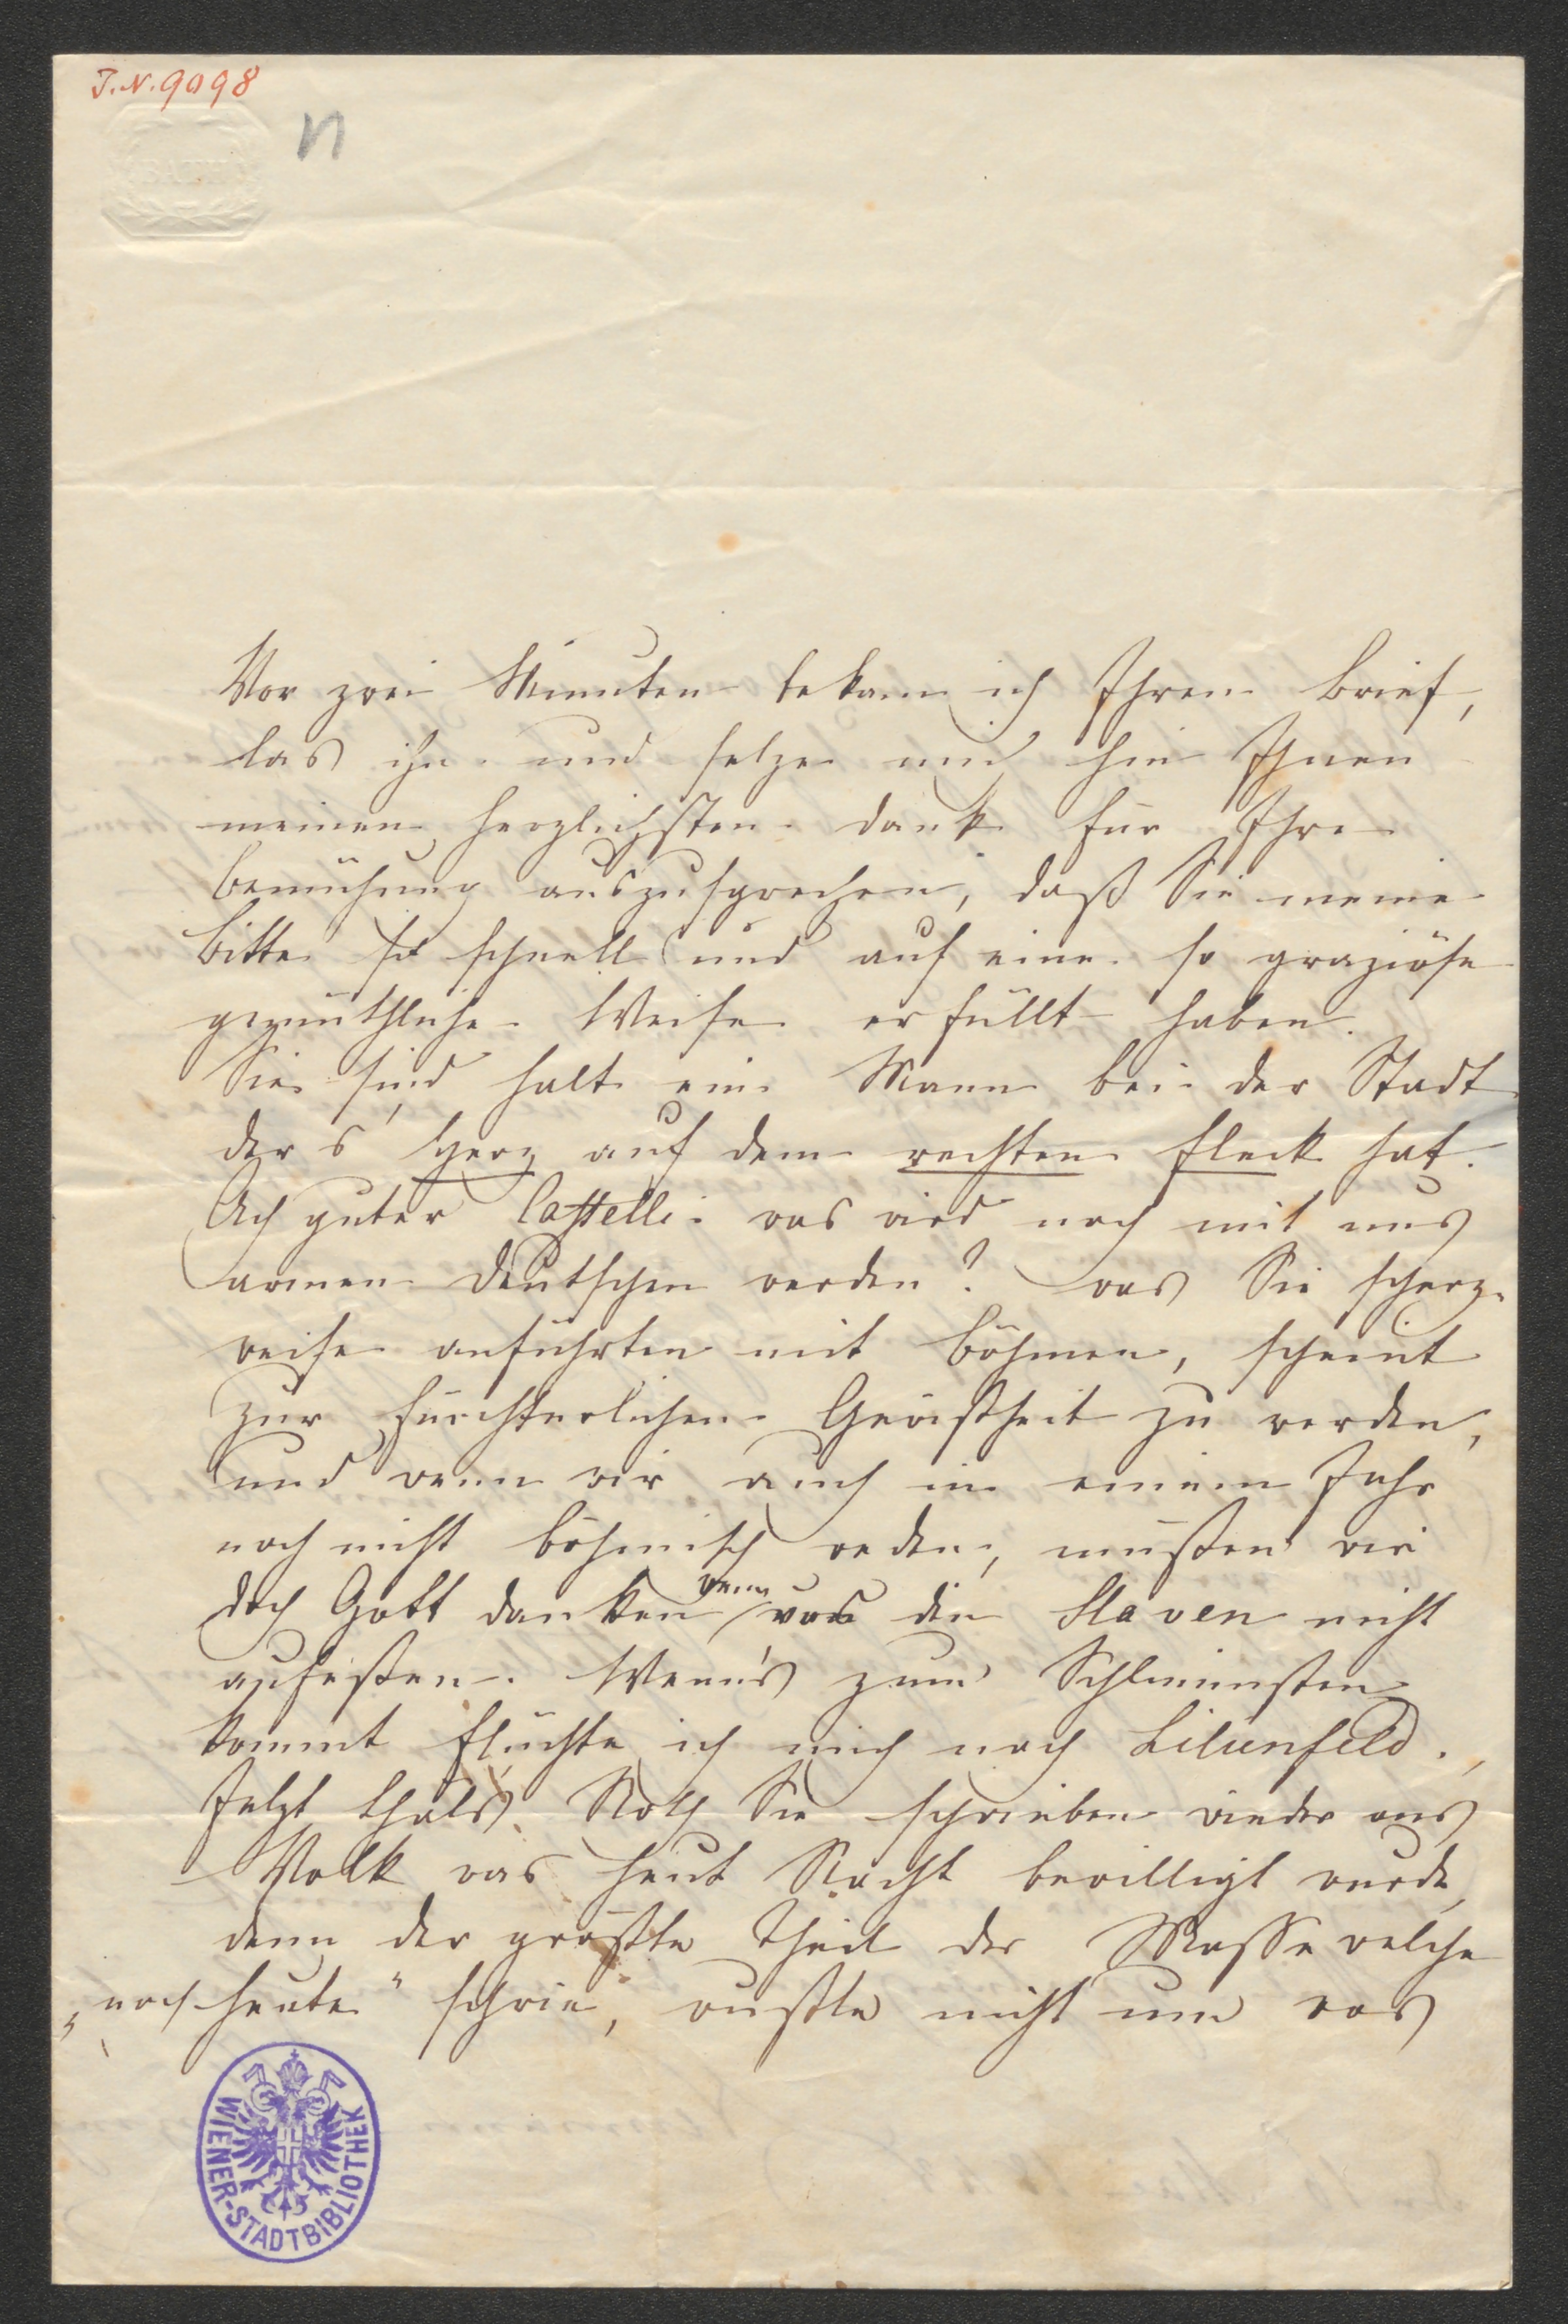 I.N. 9098
n
BATH
Vor zwei Minuten bekam ich Ihren Brief,
las ihn und setze mich hin Ihnen
meinen herzlichsten Dank für Ihre
Bemühung auszusprechen, daß Sie meine
Bitte so schnell und auf eine so graziöse
gemüthliche Weise erfüllt haben.
Sie sind halt ein Mann bei der Stadt
der s' Herz auf dem rechten Fleck hat.
Ach guter Castelli was wird noch mit uns
armen Deutschen werden? was Sie scherz-
weise anführten mit Böhmen, scheint
zur fürchterlichen Gewißheit zu werden,
und wenn wir auch in einem Jahr
noch nicht böhmisch reden, müßen wir
doch Gott danken wenn uns die Slaven nicht
auffreßen. Wenn's zum Schlimmsten
kommt flüchte ich mich nach Lilienfeld.
Jetzt thäts Noth Sie schrieben wieder ans
Volk was heut Nacht bewilligt wurde,
denn der größte Theil der Masse welche
„noch heute" schrie, wußte nicht um was
WIENER-STADTBIBLIOTHEK